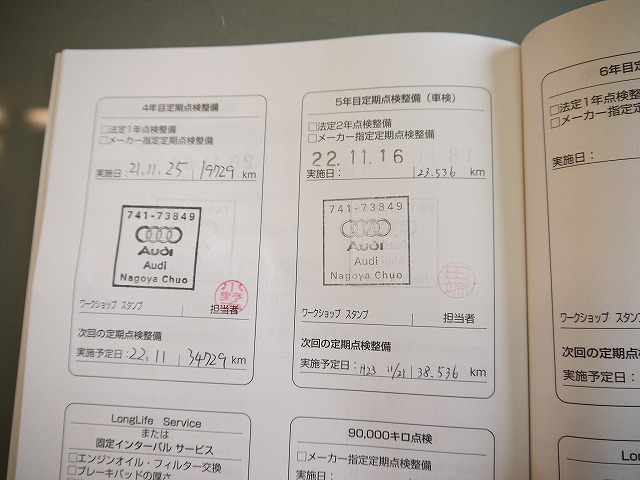 4年目定期点検整備
□法定1年点検整備
□メーカー指定定期点検整備
実施日: 21.11.25 19729 km
741-73849
Audi
Audi
Nagoya Chuo
小野
ワークショップ スタンプ 担当者
次回の定期点検整備
実施予定日: 22.11 34729 km
LongLife Service
または
固定インターバル サービス
□エンジンオイル・フィルター交換
□ブレーキパッドの厚さ
5年目定期点検整備（車検）
□法定2年点検整備
□メーカー指定定期点検整備
22.11.16
実施日: 23.536 km
741-73849
Audi
Audi
Nagoya Chuo
田端
ワークショップ スタンプ 担当者
次回の定期点検整備
実施予定日: H23 11/21 38.536 km
90,000キロ点検
□メーカー指定定期点検整備
実施日: km
6年目定
□法定1年点検整
□メーカー指定定
実施日:
ワークショップ スタン
次回の定期点
実施予定日:
Lon